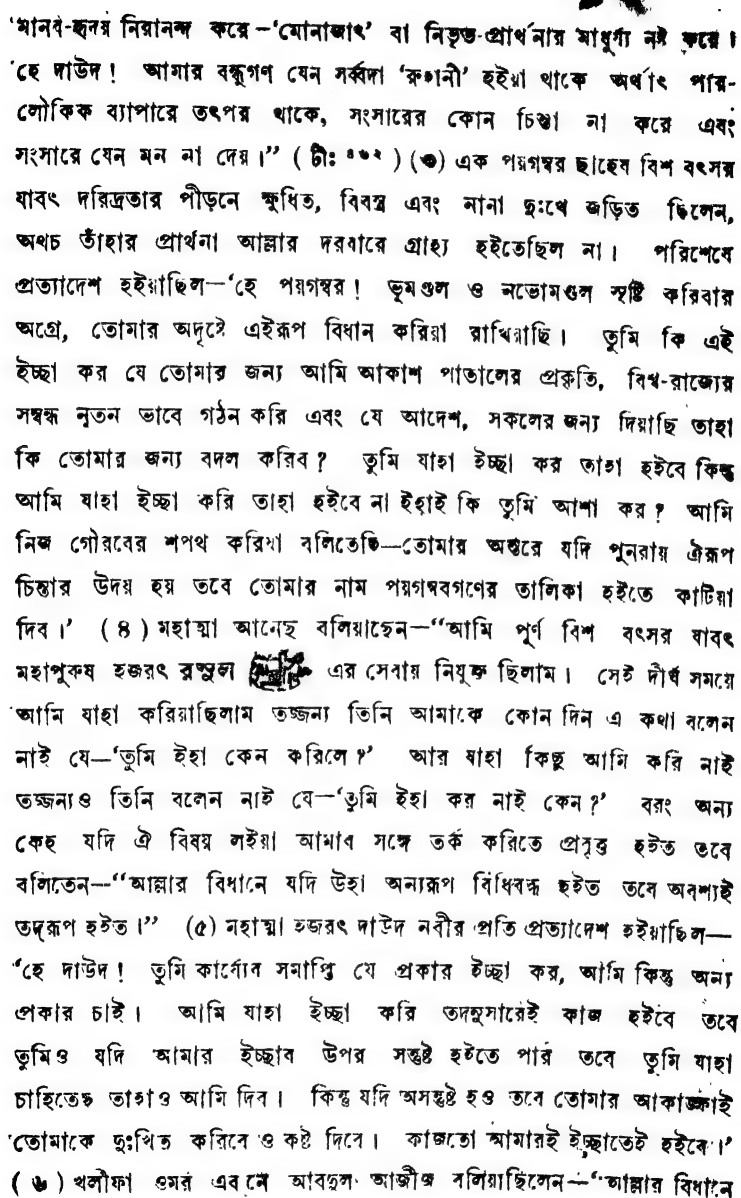 'মানব-হৃদয় নিরানন্দ করে –'মোনাজাৎ' বা নিভৃত-প্রার্থনার মাধুর্য্য নষ্ট করে।
'হে দাউদ! আমার বন্ধুগণ যেন সর্ব্বদা 'রুহানী' হইয়া থাকে অর্থাৎ পার-
লৌকিক ব্যাপারে তৎপর থাকে, সংসারের কোন চিন্তা না করে এবং
সংসারে যেন মন না দেয়।" ( টীঃ ৪৬২ ) (৩) এক পয়গম্বর ছাহেব বিশ বৎসর
যাবৎ দরিদ্রতার পীড়নে ক্ষুধিত, বিবস্ত্র এবং নানা দুঃখে জড়িত ছিলেন,
অথচ তাঁহার প্রার্থনা আল্লার দরবারে গ্রাহ্য হইতেছিল না। পরিশেষে
প্রত্যাদেশ হইয়াছিল—'হে পয়গম্বর! ভূমণ্ডল ও নভোমণ্ডল সৃষ্টি করিবার
অগ্রে, তোমার অদৃষ্টে এইরূপ বিধান করিয়া রাখিয়াছি। তুমি কি এই
ইচ্ছা কর যে তোমার জন্য আমি আকাশ পাতালের প্রকৃতি, বিশ্ব-রাজ্যের
সম্বন্ধ নূতন ভাবে গঠন করি এবং যে আদেশ, সকলের জন্য দিয়াছি তাহা
কি তোমার জন্য বদল করিব? তুমি যাহা ইচ্ছা কর তাহা হইবে কিন্তু
আমি যাহা ইচ্ছা করি তাহা হইবে না ইহাই কি তুমি আশা কর? আমি
নিজ গৌরবের শপথ করিয়া বলিতেছি—তোমার অন্তরে যদি পুনরায় ঐরূপ
চিন্তার উদয় হয় তবে তোমার নাম পয়গম্বরগণের তালিকা হইতে কাটিয়া
দিব।' (৪) মহাত্মা আনেছ বলিয়াছেন—"আমি পূর্ণ বিশ বৎসর যাবৎ
মহাপুরুষ হজরৎ রছুল এর সেবায় নিযুক্ত ছিলাম। সেই দীর্ঘ সময়ে
আমি যাহা করিয়াছিলাম তজ্জন্য তিনি আমাকে কোন দিন এ কথা বলেন
নাই যে—'তুমি ইহা কেন করিলে?' আর যাহা কিছু আমি করি নাই
তজ্জন্যও তিনি বলেন নাই যে—'তুমি ইহা কর নাই কেন?' বরং অন্য
কেহ যদি ঐ বিষয় লইয়া আমার সঙ্গে তর্ক করিতে প্রবৃত্ত হইত তবে
বলিতেন—"আল্লার বিধানে যদি উহা অন্যরূপ বিধিবদ্ধ হইত তবে অবশ্যই
তদ্রূপ হইত।" (৫) মহাত্মা হজরৎ দাউদ নবীর প্রতি প্রত্যাদেশ হইয়াছিল—
'হে দাউদ! তুমি কার্য্যের সমাপ্তি যে প্রকার ইচ্ছা কর, আমি কিন্তু অন্য
প্রকার চাই। আমি যাহা ইচ্ছা করি তদনুসারেই কাজ হইবে তবে
তুমিও যদি আমার ইচ্ছার উপর সন্তুষ্ট হইতে পার তবে তুমি যাহা
চাহিতেছ তাহাও আমি দিব। কিন্তু যদি অসন্তুষ্ট হও তবে তোমার আকাঙ্ক্ষাই
তোমাকে দুঃখিত করিবে ও কষ্ট দিবে। কাজতো আমারই ইচ্ছাতেই হইবে।'
(৬) খলীফা ওমর এবনে আবদুল আজীজ বলিয়াছিলেন—"আল্লার বিধানে